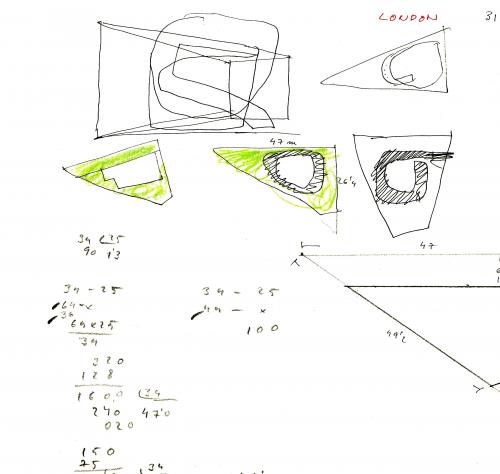 LONDON 31
47 m
26'4
34 25
90 1'3
47
34 - 25
64 - x
34
64 x 25
34
34 - 25
44 - x
100
49'2
320
128
1600 34
240 47'0
020
150
75
34